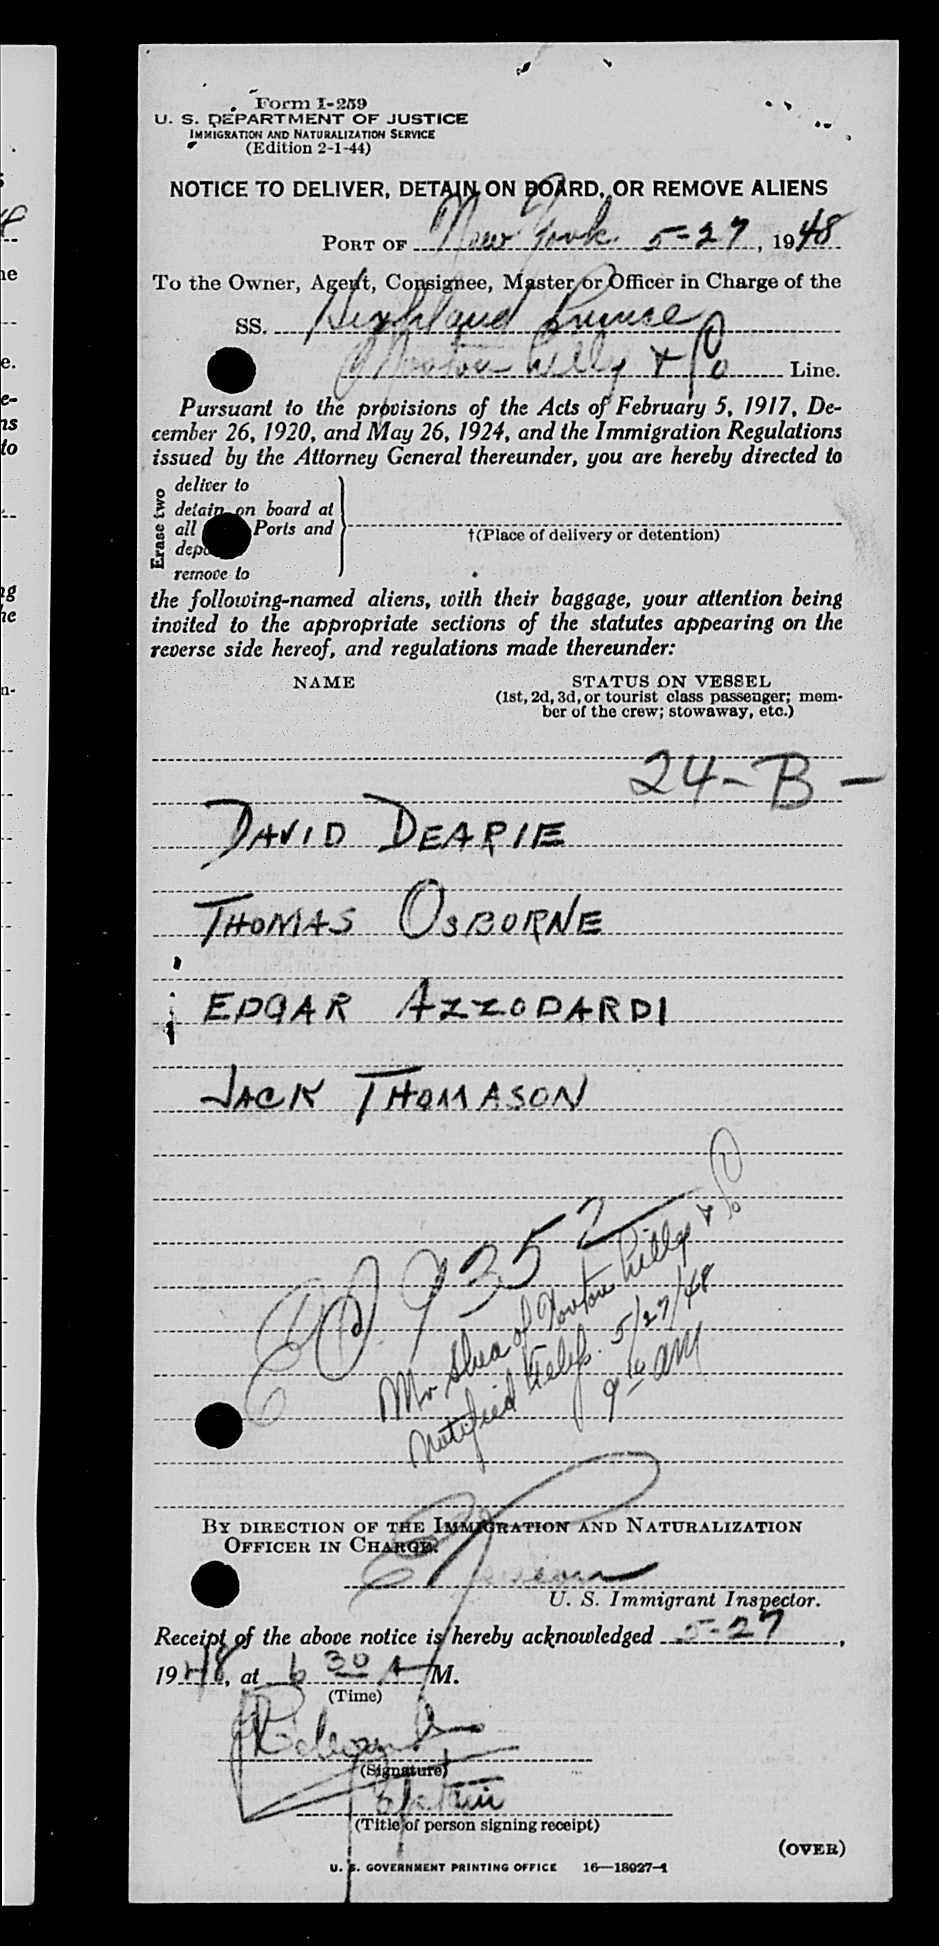 Form I-259
U. S. DEPARTMENT OF JUSTICE
IMMIGRATION AND NATURALIZATION SERVICE
(Edition 2-1-44)
NOTICE TO DELIVER, DETAIN ON BOARD, OR REMOVE ALIENS
PORT OF New York 5-27, 1948
To the Owner, Agent, Consignee, Master or Officer in Charge of the
SS. Highland Prince
Norton Lilly & Co Line.
Pursuant to the provisions of the Acts of February 5, 1917, De-
cember 26, 1920, and May 26, 1924, and the Immigration Regulations
issued by the Attorney General thereunder, you are hereby directed to
Erase two
deliver to
detain on board at
all Ports and
†(Place of delivery or detention)
remove to
the following-named aliens, with their baggage, your attention being
invited to the appropriate sections of the statutes appearing on the
reverse side hereof, and regulations made thereunder:
NAME STATUS ON VESSEL
(1st, 2d, 3d, or tourist class passenger; mem-
ber of the crew; stowaway, etc.)
24-B-
DAVID DEARIE
THOMAS OSBORNE
EDGAR AZZODARDI
JACK THOMASON
9352
Mr Shea of Norton Lilly & Co
Notified Teleph. 5/27/48
9 10 AM
BY DIRECTION OF THE IMMIGRATION AND NATURALIZATION
OFFICER IN CHARGE.
U. S. Immigrant Inspector.
Receipt of the above notice is hereby acknowledged 5-27,
1948, at 6 30 A M.
(Time)
(Signature)
(Title of person signing receipt)
(OVER)
U. S. GOVERNMENT PRINTING OFFICE 16—18027-1